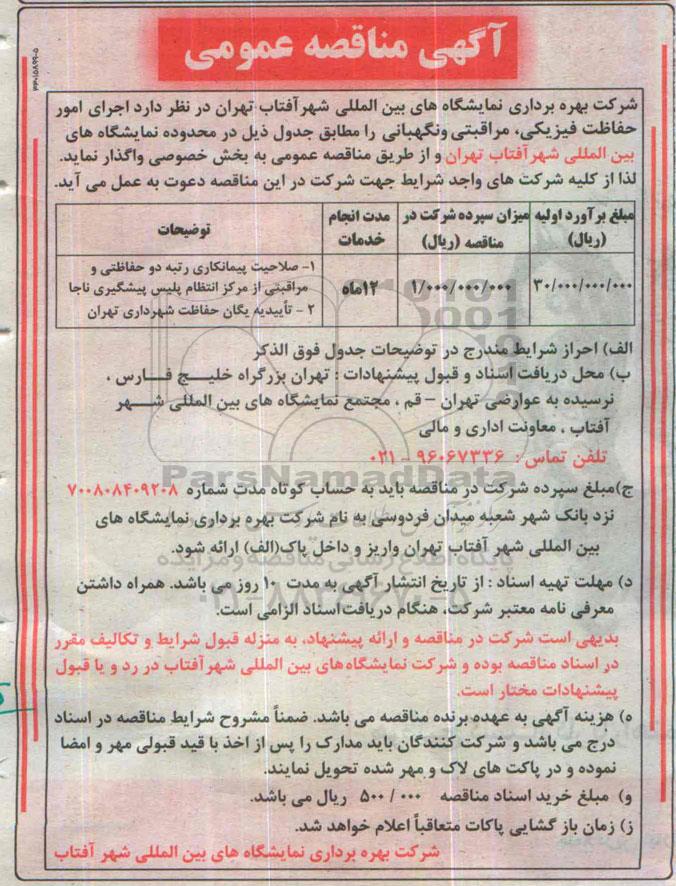 آگهی مناقصه عمومی
۳۳۰۱۵۸۹۹-۵
شرکت بهره برداری نمایشگاه های بین المللی شهرآفتاب تهران در نظر دارد اجرای امور
حفاظت فیزیکی، مراقبتی ونگهبانی را مطابق جدول ذیل در محدوده نمایشگاه های
بین المللی شهرآفتاب تهران و از طریق مناقصه عمومی به بخش خصوصی واگذار نماید.
لذا از کلیه شرکت های واجد شرایط جهت شرکت در این مناقصه دعوت به عمل می آید.
مبلغ برآورد اولیه (ریال)
میزان سپرده شرکت در مناقصه (ریال)
مدت انجام خدمات
توضیحات
۳۰/۰۰۰/۰۰۰/۰۰۰
۱/۰۰۰/۰۰۰/۰۰۰
۱۲ماه
۱- صلاحیت پیمانکاری رتبه دو حفاظتی و
مراقبتی از مرکز انتظام پلیس پیشگیری ناجا
۲ - تأییدیه یگان حفاظت شهرداری تهران
الف) احراز شرایط مندرج در توضیحات جدول فوق الذکر
ب) محل دریافت اسناد و قبول پیشنهادات : تهران بزرگراه خلیج فارس ،
نرسیده به عوارضی تهران – قم ، مجتمع نمایشگاه های بین المللی شهر
آفتاب ، معاونت اداری و مالی
تلفن تماس : ۹۶۰۶۷۳۳۶ - ۰۲۱
ParsNamadData
ج)مبلغ سپرده شرکت در مناقصه باید به حساب کوتاه مدت شماره ۷۰۰۸۰۸۴۰۹۲۰۸
نزد بانک شهر شعبه میدان فردوسی به نام شرکت بهره برداری نمایشگاه های
بین المللی شهر آفتاب تهران واریز و داخل پاک(الف) ارائه شود.
پایگاه اطلاع رسانی مناقصه و مزایده
د) مهلت تهیه اسناد : از تاریخ انتشار آگهی به مدت ۱۰ روز می باشد. همراه داشتن
معرفی نامه معتبر شرکت، هنگام دریافت اسناد الزامی است.
بدیهی است شرکت در مناقصه و ارائه پیشنهاد، به منزله قبول شرایط و تکالیف مقرر
در اسناد مناقصه بوده و شرکت نمایشگاه های بین المللی شهرآفتاب در رد و یا قبول
پیشنهادات مختار است.
ه) هزینه آگهی به عهده برنده مناقصه می باشد. ضمناً مشروح شرایط مناقصه در اسناد
درج می باشد و شرکت کنندگان باید مدارک را پس از اخذ با قید قبولی مهر و امضا
نموده و در پاکت های لاک و مهر شده تحویل نمایند.
و) مبلغ خرید اسناد مناقصه ۵۰۰/۰۰۰ ریال می باشد.
ز) زمان باز گشایی پاکات متعاقباً اعلام خواهد شد.
شرکت بهره برداری نمایشگاه های بین المللی شهر آفتاب